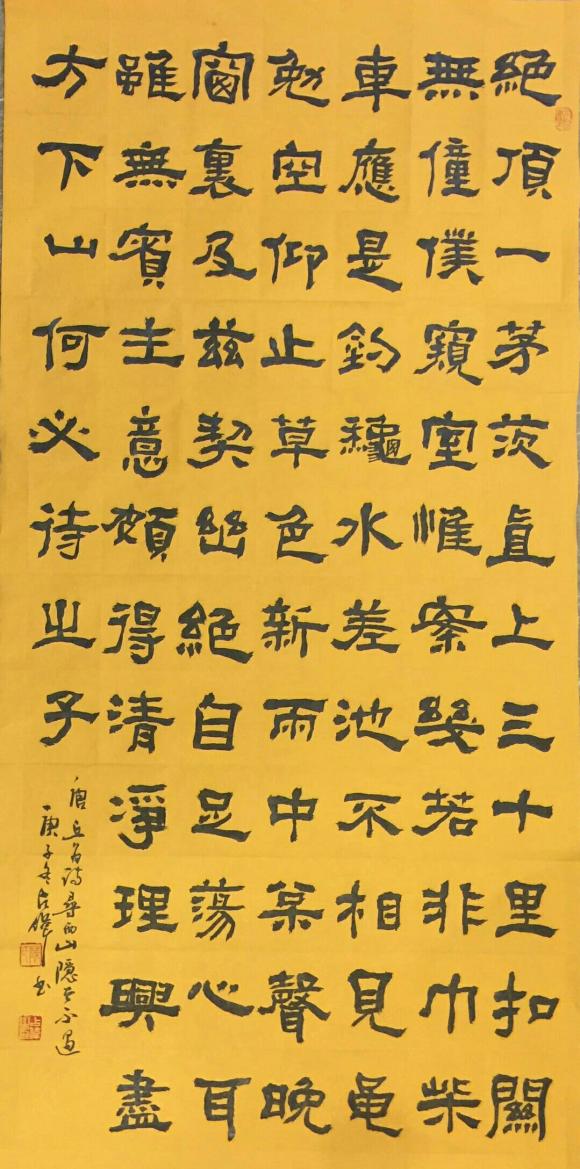 絕頂一茅茨直上三十里扣關
無僮僕窺室惟案幾若非巾柴
車應是釣龝水差池不相見黽
勉空仰止草色新雨中枩聲晚
窗裏及茲契幽絕自足蕩心耳
雖無賓主意頗得清淨理興盡
方下山何必待之子
唐丘为詩尋西山隱者不遇
庚子冬书